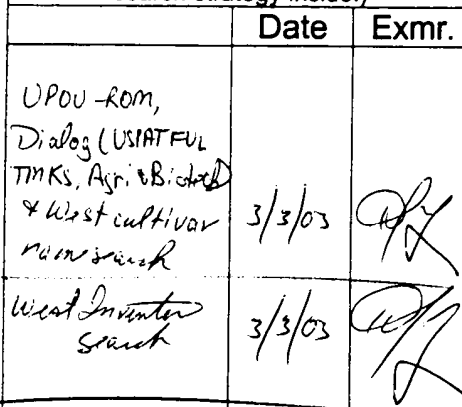 search strategy inside.)
Date Exmr.
UPOV-ROM,
Dialog (USPATFUL
TMKs, Agri & Biotech)
& West cultivar
name search
3/3/03
West Inventor
search
3/3/03